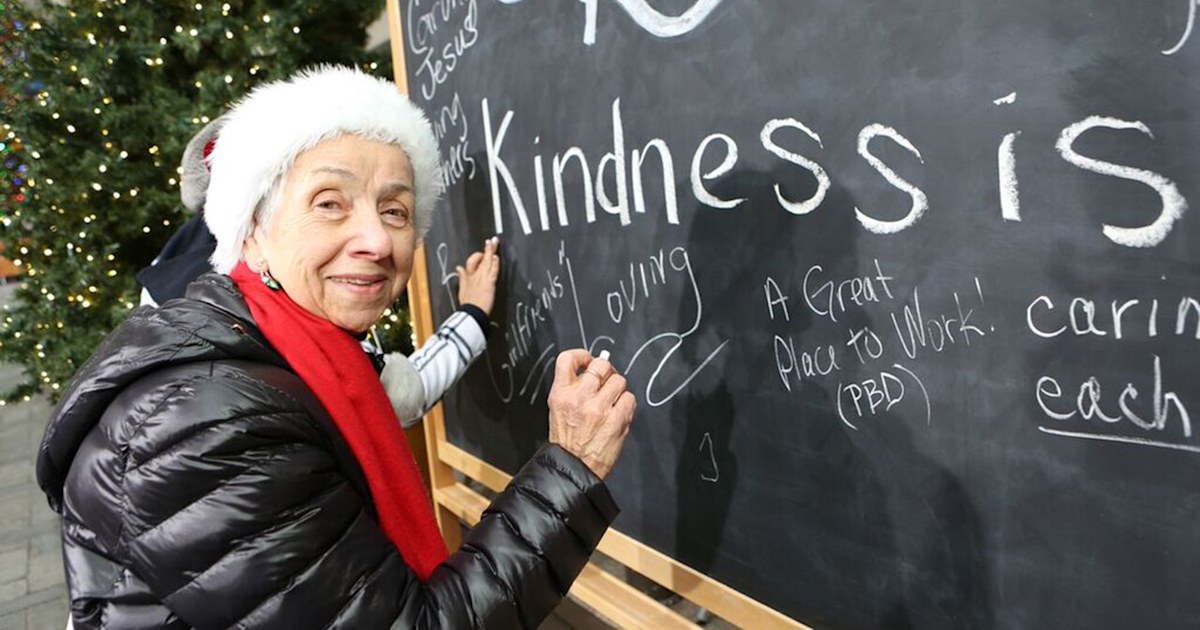 Caring
Jesus
Kindness is
Girlfriends"
Loving
A Great
Place to Work!
(PBD)
carin
each